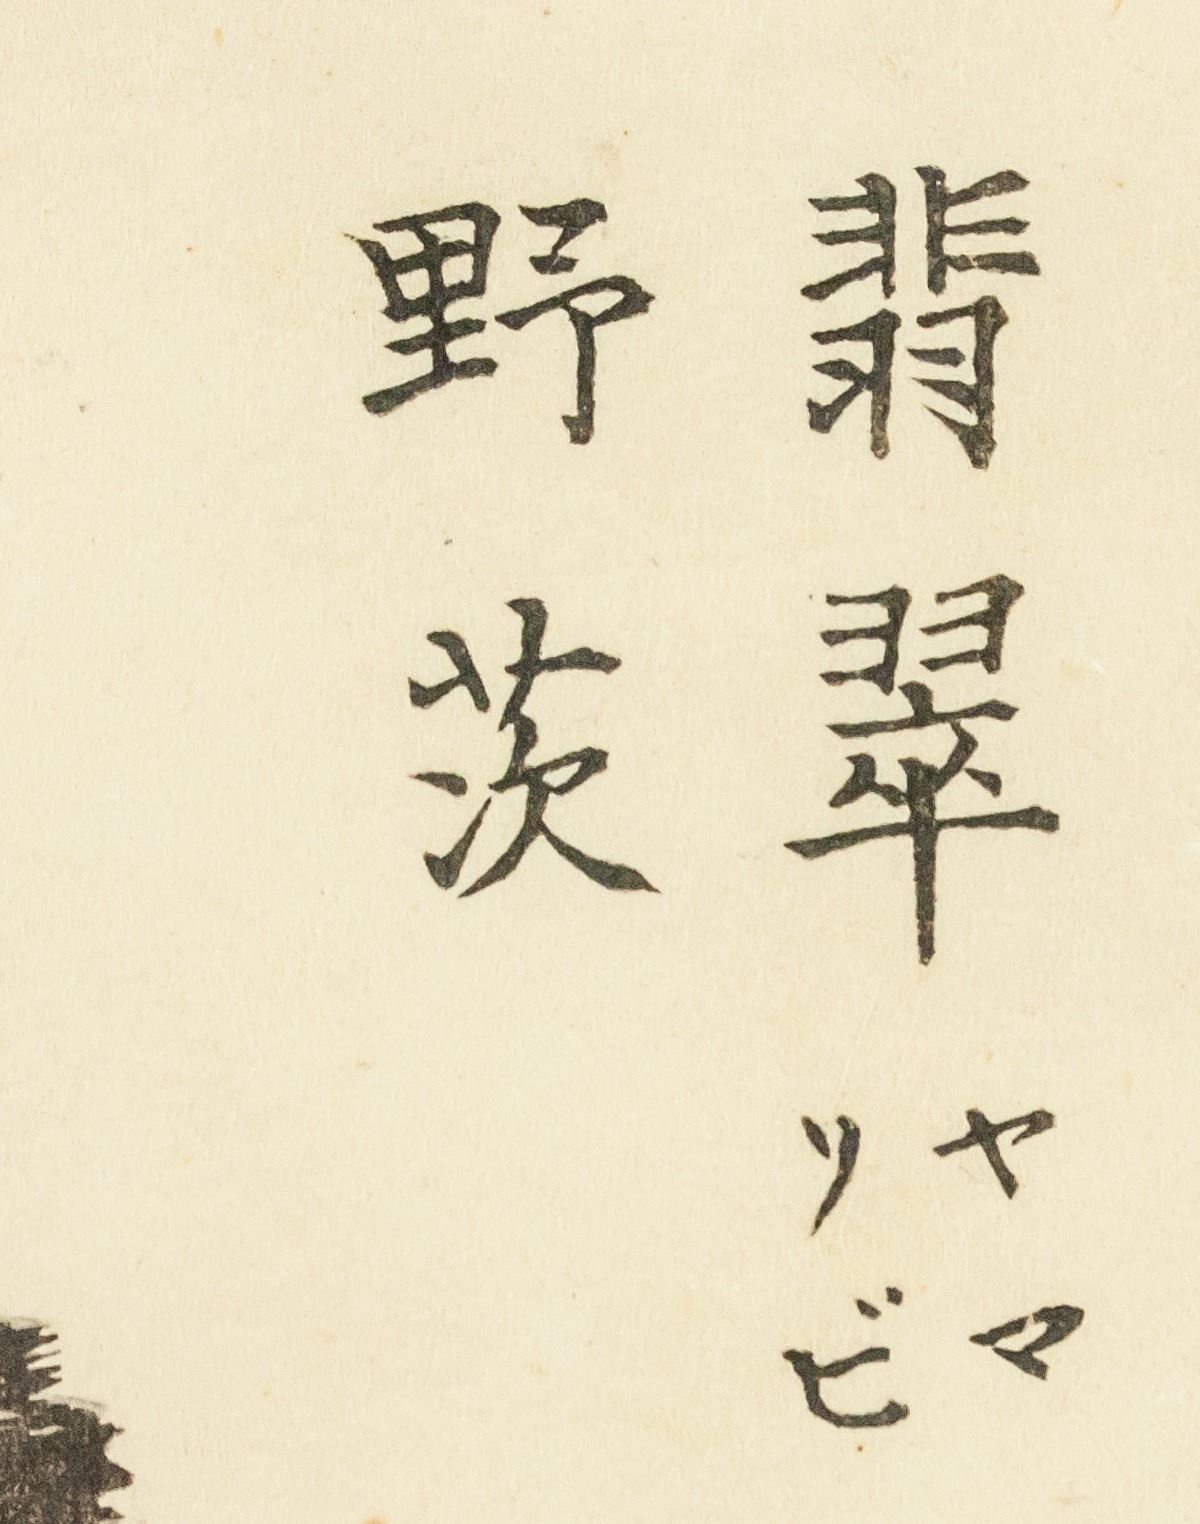 翡翠ヤマ
リビ
野茨